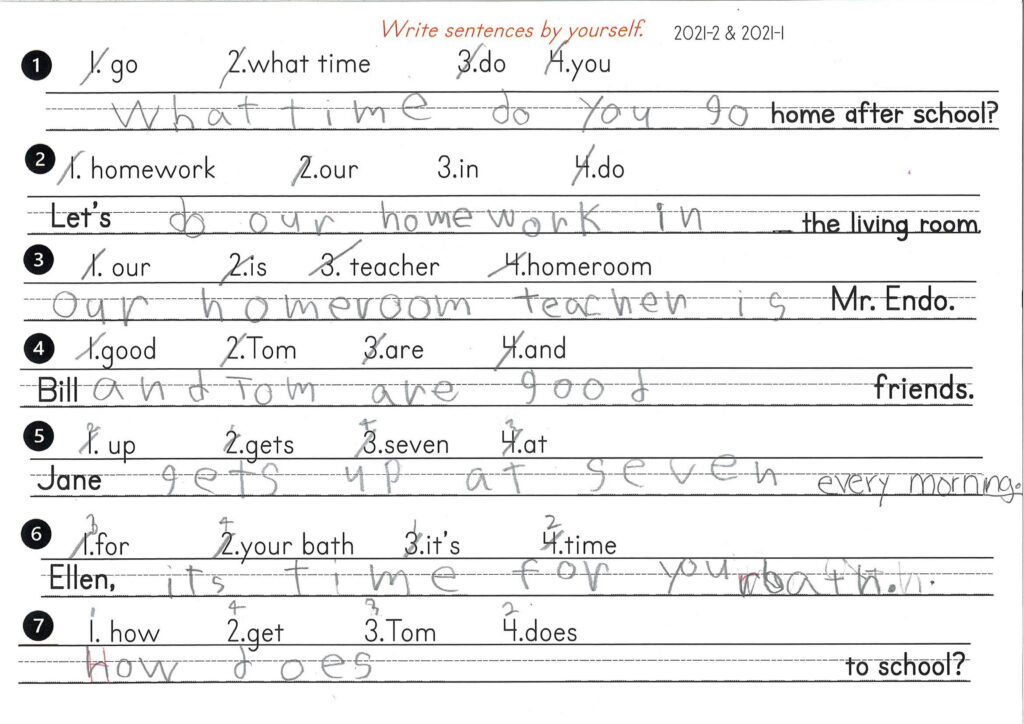 Write sentences by yourself. 2021-2 & 2021-1
1 1. go 2.what time 3.do 4.you
What time do you go home after school?
2 1. homework 2.our 3.in 4.do
Let's do our homework in _ the living room.
3 1. our 2.is 3. teacher 4.homeroom
Our homeroom teacher is Mr. Endo.
4 1.good 2.Tom 3.are 4.and
Bill and Tom are good friends.
2 1 4 3
5 1. up 2.gets 3.seven 4.at
Jane gets up at seven every morning.
3 4 1 2
6 1.for 2.your bath 3.it's 4.time
Ellen, its time for your bath.
1 4 3 2
7 1. how 2.get 3.Tom 4.does
How does to school?